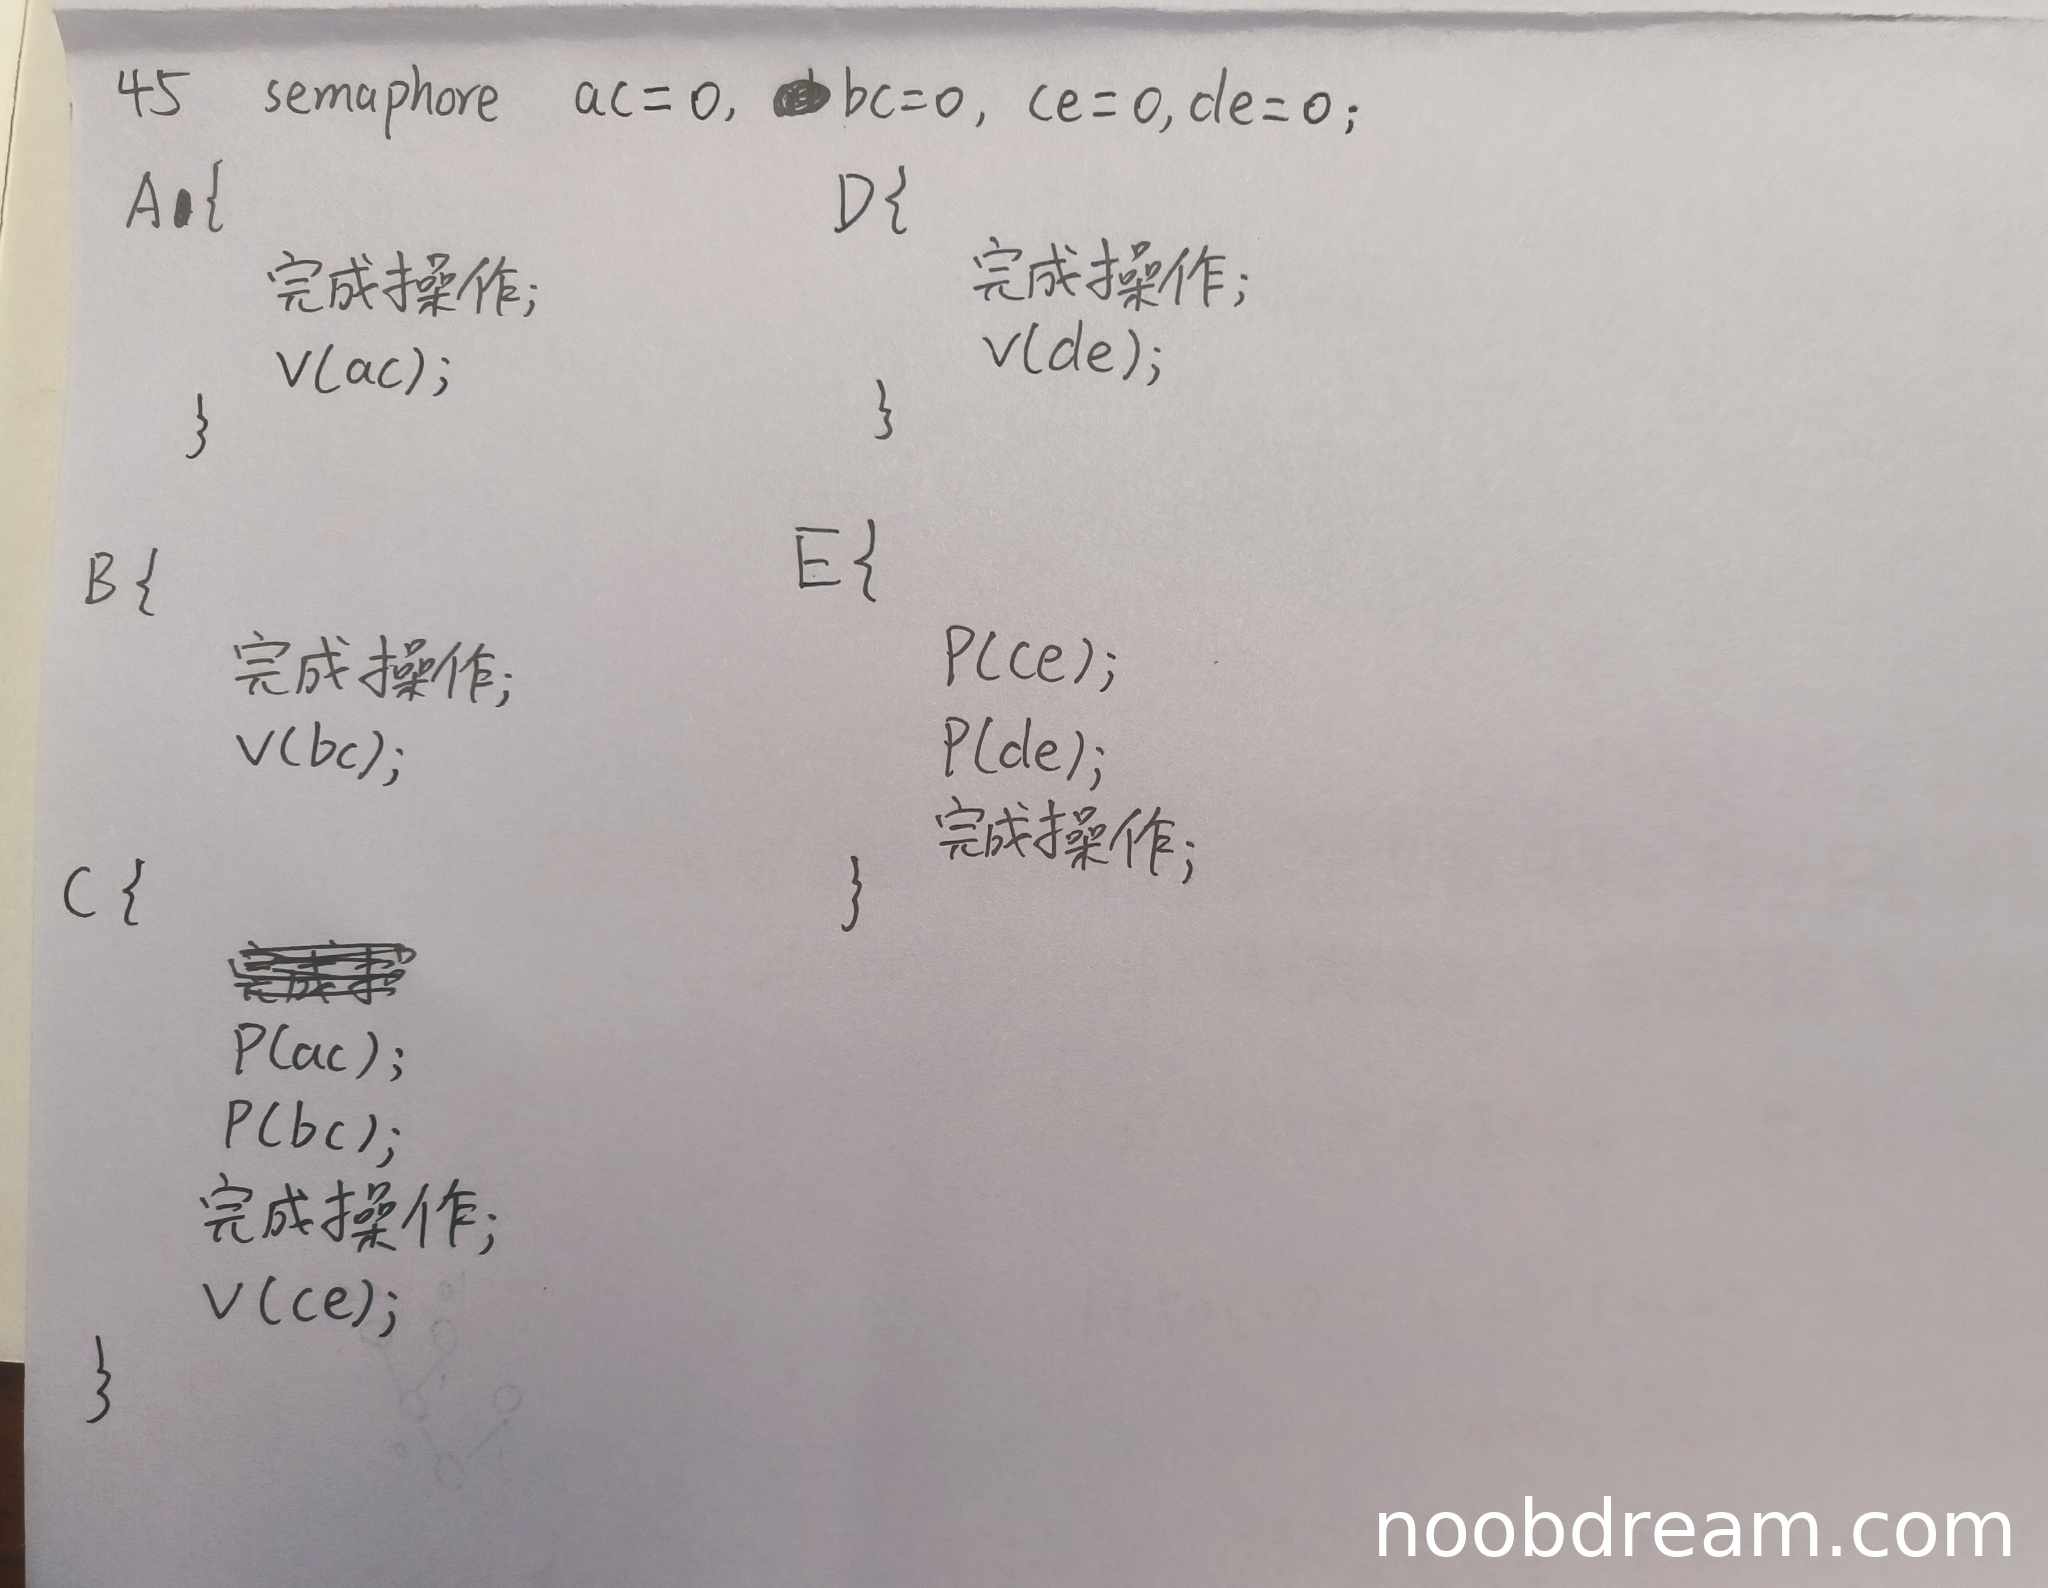 45 semaphore ac=0, bc=0, ce=0, de=0;
A {
完成操作;
V(ac);
}
B {
完成操作;
V(bc);
C {
P(ac);
P(bc);
完成操作;
V(ce);
}
D {
完成操作;
V(de);
}
E {
P(ce);
P(de);
完成操作;
}
noobdream.com